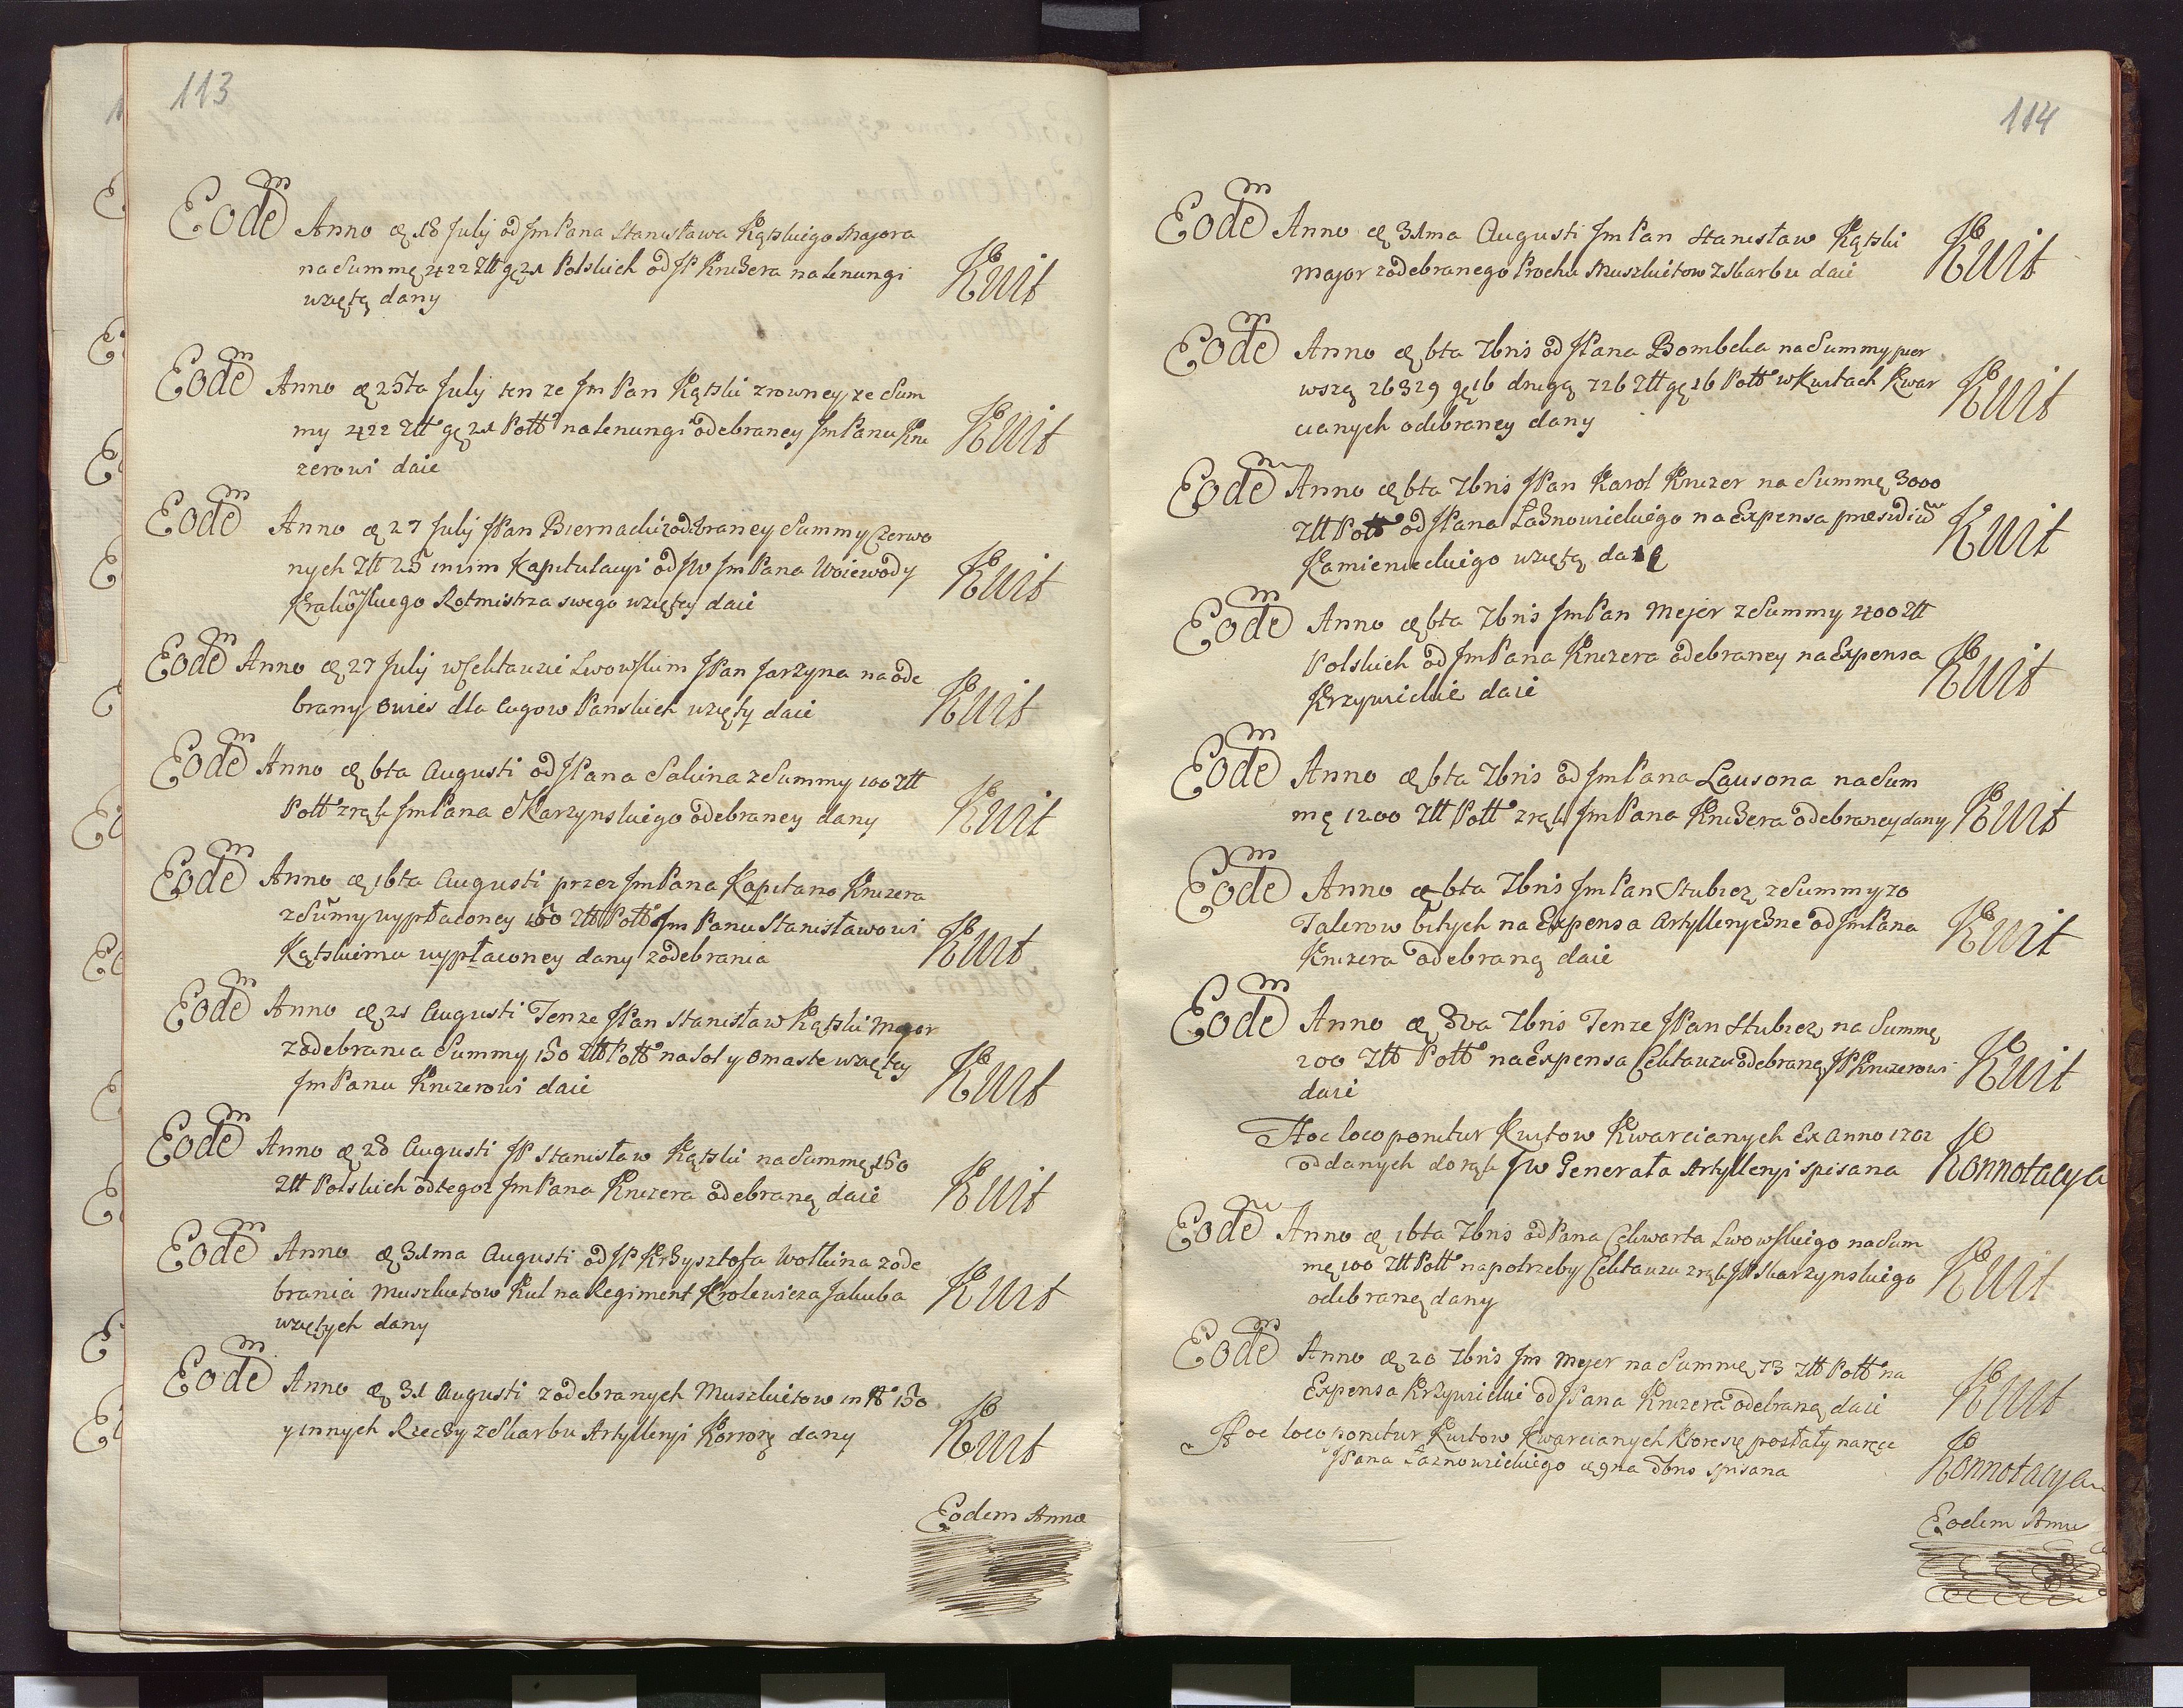 113
Eodē Anno d. 18 July od JmPana Stanisława Kątskiego Majora
na Summę 422 Złł gr 21 Polskich od JP Knizera na lenungi
wziętą dany
Kwit
Eodē Anno d. 25ta July ten ze Jm Pan Kątski zrowney ze Sum
my 422 Złł gr 21 Poll na lenungi odebraney JmPanu Kni
zerowi daie
Kwit
Eodē Anno d. 27 July JPan Biernacki z odebraney Summy Czerwo
nych Złł 25 Kapitulacyi od JW JmPana Woiewody
Krakowskiego Rotmistrza swego wziętey daie
Kwit
Eodē Anno d. 27 July w Cekhauzie Lwowskim JPan Jarzyna na ode
brany Owies dla Cugow Panskich wzięty daie
Kwit
Eodē Anno d. 6ta Augusti od JPana Sakina z Summy 100 Złł
Poll z rąk JmPana Skarzynskiego odebraney dany
Kwit
Eodē Anno d. 16ta Augusti przez JmPana Kapitana Knizera
z Sūmy wypłaconey 150 Złł Poll Jm Panu Stanisławowi
Kątskiemu wypłaconey dany z odebrania
Kwit
Eodē Anno d. 21 Augusti Tenze JPan Stanisław Kątski Major
z odebrania Summy 150 Złł Poll na Sol y Omaste wziętey
Jm Panu Knizerowi daie
Kwit
Eodē Anno d. 28 Augusti JP Stanisław Kątski na Summę 150
Złł Polskich od tegoz JmPana Knizera odebraną daie
Kwit
Eodē Anno d. 31ma Augusti od JP Krzysztofa Wollina z ode
brania Muszkietow Kul na Regiment Krolewicza Jakuba
wziętych dany
Kwit
Eodē Anno d. 31 Augusti z odebranych Muszkietow in No 150
y innych Rzeczy z Skarbu Artylleryi Koronę dany
Kwit
Eodem Anno
114
Eodē Anno d. 31ma Augusti Jm Pan Stanisław Kątski
Major z odebranego Prochu Muszkietow z Skarbu daie
Kwit
Eodē Anno d. 6ta 7bris od JPana Bombeka na Summy pier
wszą 26329 gr 16 drugą 726 Złł gr 26 Poll w Kwitach Kwar
cianych odebraney dany
Kwit
Eodē Anno d. 6ta 7bris JPan Karol Knizer na Summę 3000
Złł Poll od JPana Łaznowickiego na Expensa presidiū
Kamienieckiego wziętą daie
Kwit
Eodē Anno d. 6ta 7bris JmPan Mejer z Summy 400 Złł
Polskich od JmPana Knizera odebraney na Expensa
Krzywickie daie
Kwit
Eodē Anno d. 6ta 7bris od JmPana Lausona na Sum
mę 1200 Złł Poll z rąk JmPana Knizera odebraney dany
Kwit
Eodē Anno d. 6ta 7bris JmPan Stubicz z Summy 20
Talerow bitych na Expensa Artylleryczne od JmPana
Knizera odebraną daie
Kwit
Eodē Anno d. 8va 7bris Tenze JPan Stubicz na Summę
200 Złł Poll na Expensa Cekhauzu odebraną JP Knizerowi
daie
Kwit
Hoc loco ponitur Kwitow Kwarcianych Ex Anno 1702
oddanych do rąk JW Generała Artylleryi spisana
Konnotacya
Eodē Anno d. 16ta 7bris od Pana Cekwarta Lwowskiego na Sum
mę 100 Złł Poll na potrzeby Cekhauzu z rąk JP Skarzynskiego
odebraną dany
Kwit
Eodē Anno d. 20 7bris Jm Mejer na Summę 73 Złł Poll na
Expensa Krzywickie od JPana Knizera odebraną daie
Kwit
Hoc loco ponitur Kwitow Kwarcianych ktore się posłały na ręce
JPana Łaznowickiego d. 9na 8bris spisana
Konnotacya
Eodem Anno